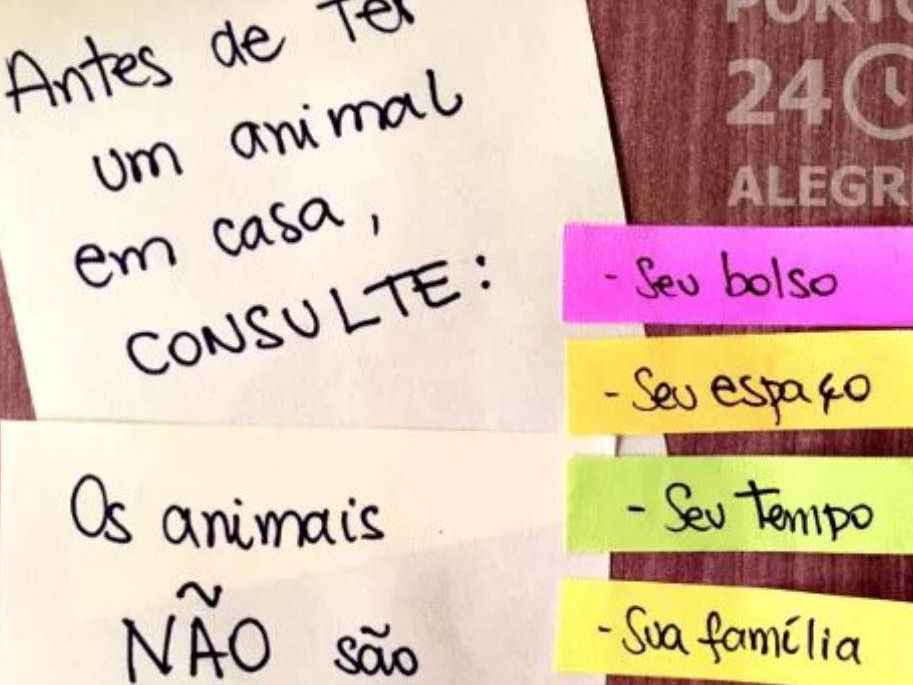 Antes de Ter
um animal
em casa,
CONSULTE:
- Seu bolso
- Seu espaço
- Seu Tempo
- Sua família
Os animais
NÃO são
24